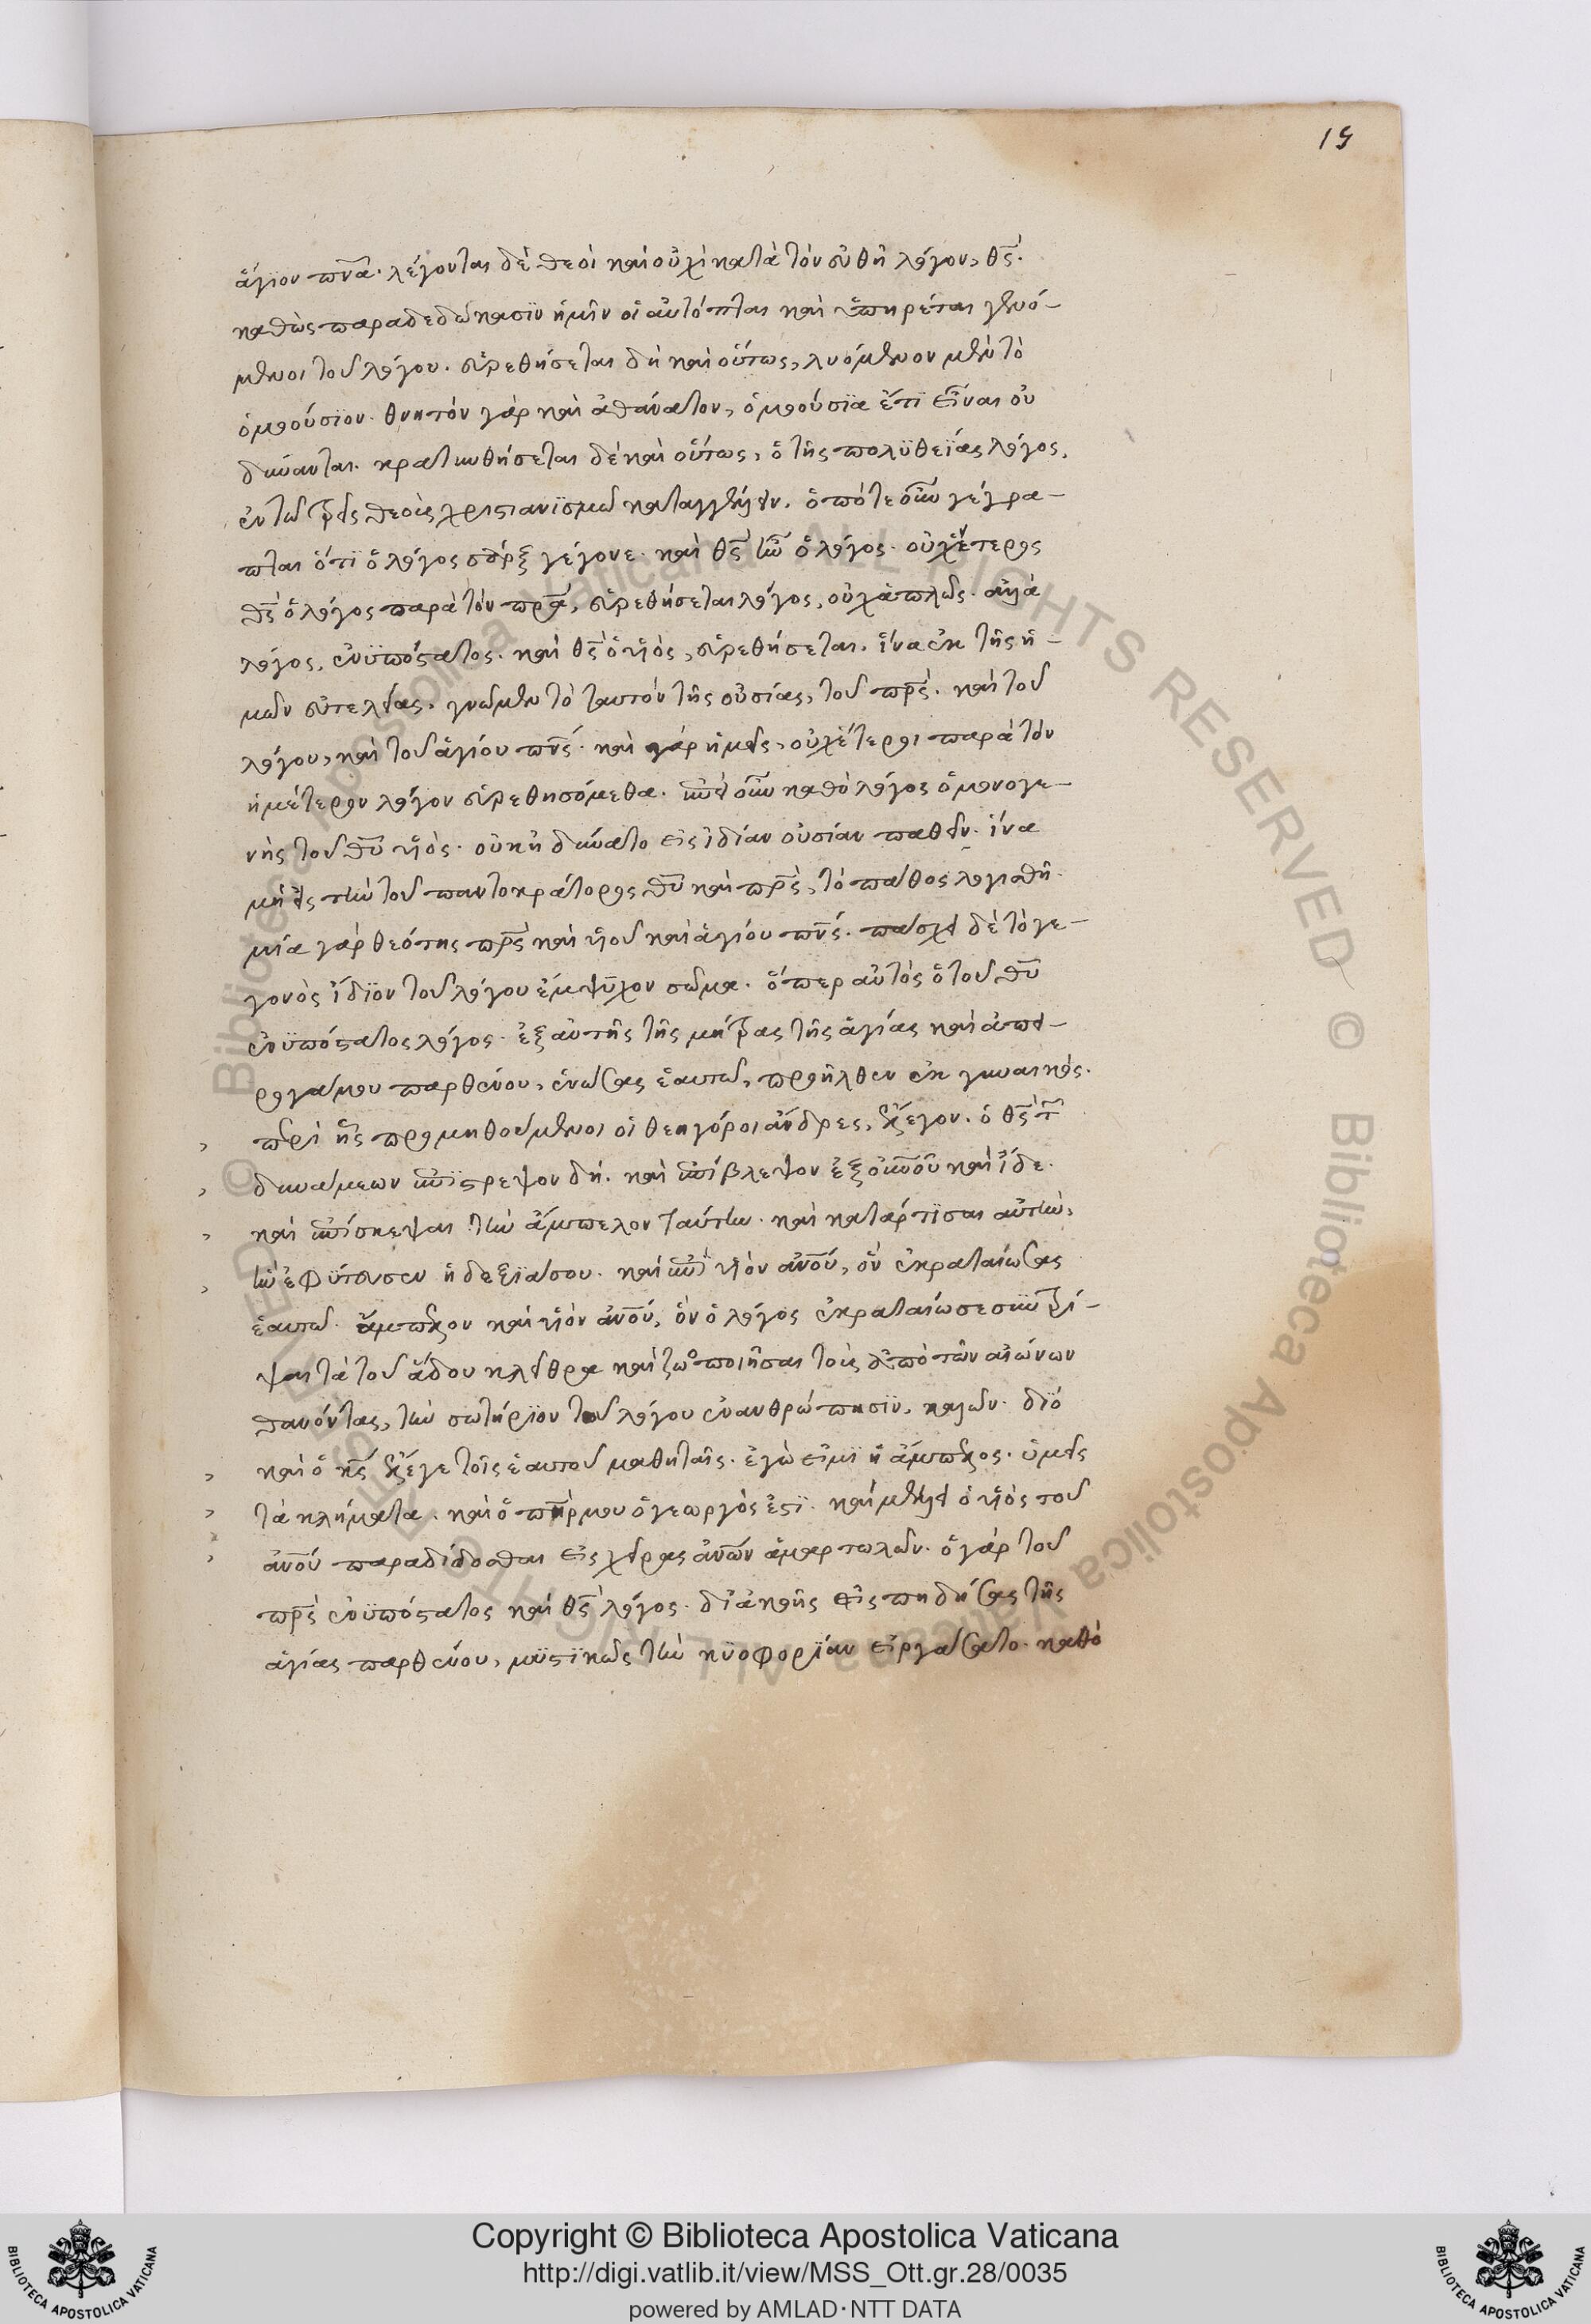 15
ἅγιον πνᾶ· λέγονται δὲ θεοὶ καὶ οὐχὶ κατὰ τὸν εὐθῆ λόγον, θς̄·
καθὼς παραδεδώκασϊν ἡμῖν οἱ αὐτόπται καὶ ὑπηρέται γενό-
μενοι τοῦ λόγου. εὑρεθήσεται δὴ καὶ οὕτως, λυόμενον μὲν τὸ
ὁμοούσϊον· θνητὸν γὰρ καὶ ἀθάνατον, ὁμοούσϊα ἔτϊ εἶναι οὐ
δύνανται. κρατυνθήσεται δὲ καὶ οὕτως, ὁ τῆς πολϋθεΐας λόγος,
ἐν τῶ τρεῖς θεοὺς χριστιανϊσμῶ καταγγέλλειν. ὁπότε οὖν γέγρα-
πται ὅτϊ ὁ λόγος σὰρξ γέγονε· καὶ θς̄ ἦν ὁ λόγος· οὐχ ἕτερος
θς̄ ὁ λόγος παρὰ τὸν πρᾱ, εὑρεθήσεται λόγος, οὐχ ἁπλῶς· ἀλλὰ
λόγος, ἐνϋπόστατος· καὶ θς̄ ὁ υἱὸς, εὑρεθήσεται. ἵνα ἐκ τῆς ἡ-
μῶν εὐτελείας, γνῶμεν τὸ ταυτὸν τῆς οὐσίας, τοῦ πρς̄· καὶ τοῦ
λόγου, καὶ τοῦ ἁγίου πνς̄· καὶ γὰρ ἡμεῖς, οὐχ ἕτεροι παρὰ τὸν
ἡμέτερον λόγον εὑρεθησόμεθα. ἐπεὶ οὖν καθὸ λόγος ὁ μονογε-
νὴς τοῦ θῦ υἱὸς· οὐκ ἠδύνατο εἰς ἰδίαν οὐσίαν παθεῖν· ἵνα
μὴ εἰς τὴν τοῦ παντοκράτορος θῦ καὶ πρς̄, τὸ πάθος λογισθῆ·
μία γὰρ θεότης πρς̄ καὶ υἱοῦ καὶ ἁγίου πνς̄. πάσχει δὲ τὸ γε-
γονὸς ἴδϊον τοῦ λόγου ἔμψυχον σῶμα· ὅπερ αὐτὸς ὁ τοῦ θῦ
ἐνϋπόστατος λόγος· ἐξ αὐτῆς τῆς μήτρας τῆς ἁγίας καὶ ἀπει-
ρογάμου παρθένου, ἑνώσας ἑαυτῶ, προῆλθεν ἐκ γυναικός.
περὶ ἧς προμηθούμενοι οἱ θεηγόροι ἄνδρες, ἔλεγον. ὁ θς̄ τῶν
δυνάμεων ἐπϊστρεψον δή. καὶ ἐπίβλεψον ἐξ οὐνοῦ καὶ ἴδε·
καὶ ἐπίσκεψαι τὴν ἄμπελον ταύτην· καὶ κατάρτϊσαι αὐτήν,
ἣν ἐφύτευσεν ἡ δεξϊά σου· καὶ ἐπὶ υἱὸν ἀνοῦ, ὃν ἐκραταίωσας
ἑαυτῶ. ἄμπελον καὶ υἱὸν ἀνοῦ, ὃν ὁ λόγος ἐκραταίωσε συντρί-
ψαι τὰ τοῦ ἅδου κλεῖθρα καὶ ζωοποιῆσαι τοὺς ἀπὸ τῶν αἰώνων
θανόντας, τὴν σωτήρϊον τοῦ λόγου ἐνανθρώπησϊν, καλῶν· διὸ
καὶ ὁ κς̄ ἔλεγε τοῖς ἑαυτοῦ μαθηταῖς. ἐγὼ εἰμϊ ἡ ἄμπελος· ὑμεῖς
τὰ κλήματα. καὶ ὁ πηρ μου ὁ γεωργὸς ἐστϊ. καὶ μέλλει ὁ υἱὸς τοῦ
ἀνοῦ παραδίδοσθαι εἰς χεῖρας ἀνῶν ἁμαρτωλῶν. ὁ γὰρ τοῦ
πρς̄ ἐνϋπόστατος καὶ θς̄ λόγος· δϊ ἀκοῆς εἰς πηδήσας τῆς
ἁγίας παρθένου, μυστϊκῶς τὴν κϋοφορίαν εἰργάσατο. καθὸ
Copyright © Biblioteca Apostolica Vaticana
http://digi.vatlib.it/view/MSS_Ott.gr.28/0035
powered by AMLAD·NTT DATA